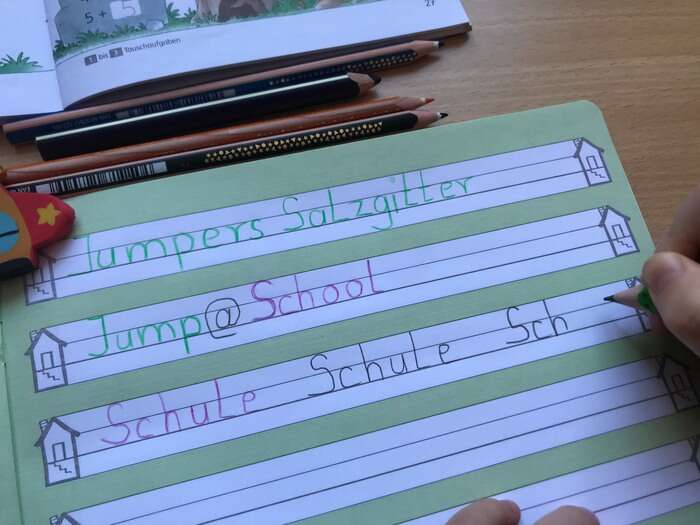 5 + 5
27
1 bis 3 Tauschaufgaben
Jumpers Salzgitter
Jump@School
Schule Schule Sch